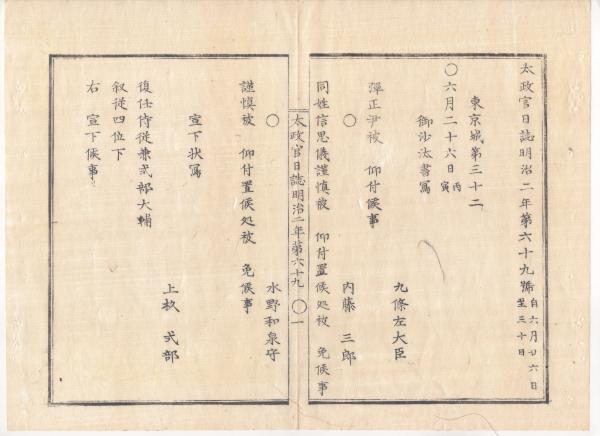 太政官日誌明治二年第六十九號 自六月廿六日至三十日
東京城第三十二
〇六月二十六日 丙寅
御沙汰書寫
九條左大臣
彈正尹被 仰付候事
〇
内藤 三郎
同姓信思儀謹慎被 仰付置候処被 免候事
太政官日誌明治二年第六十九 〇一
〇
水野和泉守
謹慎被 仰付置候処被 免候事
宣下状寫
上杉 式部
復任侍從兼式部大輔
叙從四位下
右 宣下候事